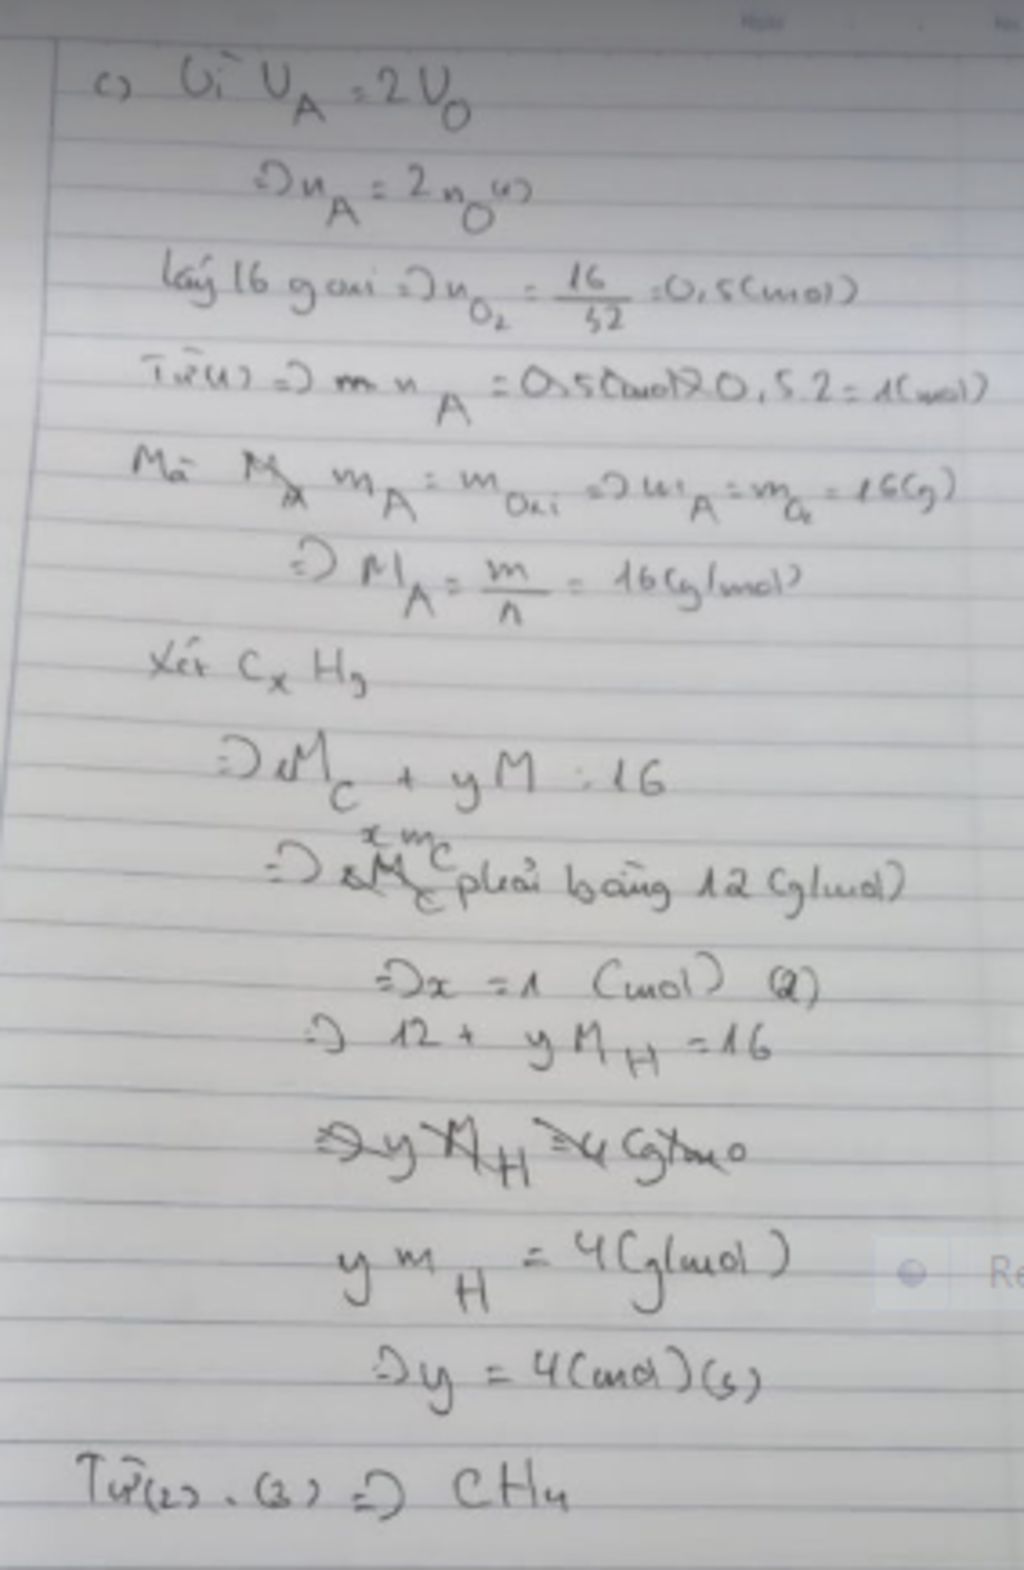 Ngày No.
c) Vì V_A = 2V_O
=> n_A = 2n_O (1)
Lấy 16 g oxi => n_O₂ = 16/32 = 0,5 (mol)
Từ (1) => n_A = 0,5 . 2 = 1 (mol)
Mà m_A = m_Oxi => m_A = m_O₂ = 16 (g)
=> M_A = m/n = 16 (g/mol)
Xét CxHy
=> xM_C + yM = 16
=> x m_C phải bằng 12 (g/mol)
=> x = 1 (mol) (2)
=> 12 + yM_H = 16
y m_H = 4 (g/mol)
=> y = 4 (mol) (3)
Từ (2), (3) => CH₄
Re